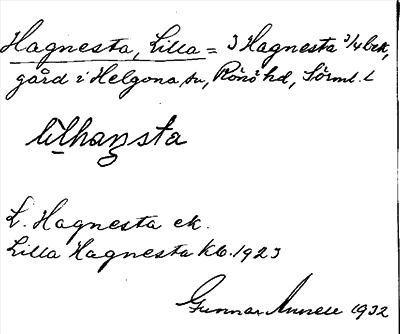 Hagnesta, Lilla = 3 Hagnesta 3/4 bek,
gård i Helgona sn, Rönö hd, Sörml. l
lilhaŋsta
L. Hagnesta ek.
Lilla Hagnesta kb. 1923
Gunnar 1932